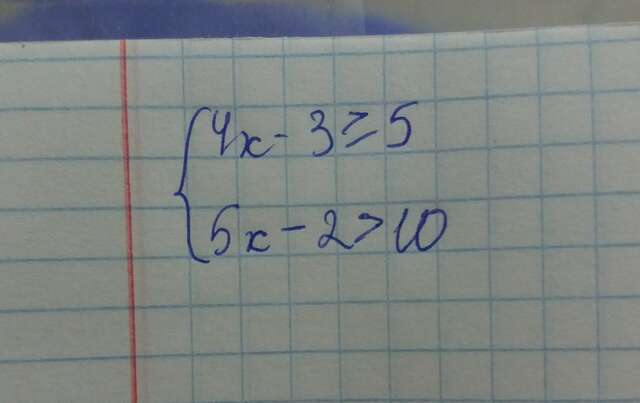 4x - 3 ≥ 5
5x - 2 > 10